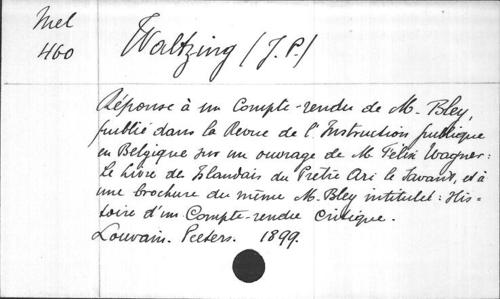 Mel
460
Waltzing (J. P.)
Réponse à un Compte-rendu de M. Bley,
publié dans la Revue de l'Instruction publique
en Belgique sur un ouvrage de M Félix Wagner:
Le Livre de Islandais du Prêtre Ari le Savant, et à
une brochure du même M. Bley intitulét: His-
toire d'un Compte-rendu critique.
Louvain. Peeters. 1899.